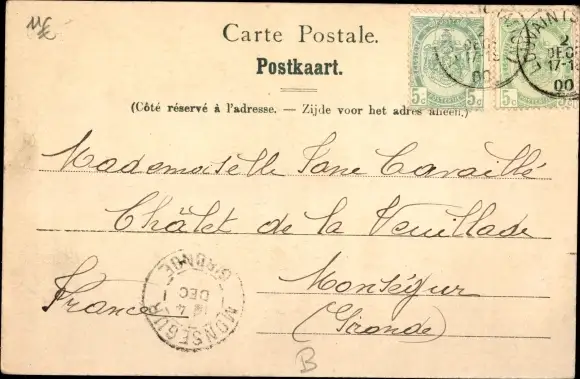 Carte Postale.
Postkaart.
(Côté réservé à l'adresse. — Zijde voor het adres alleen.)
5c 5c 5c 5c
2
DEC
17-1
00
Mademoiselle Jane Cavaillé
Châlet de la Feuillade
Monségur
France
(Gironde)
MONSEGUR
GIRONDE
4
DEC
B